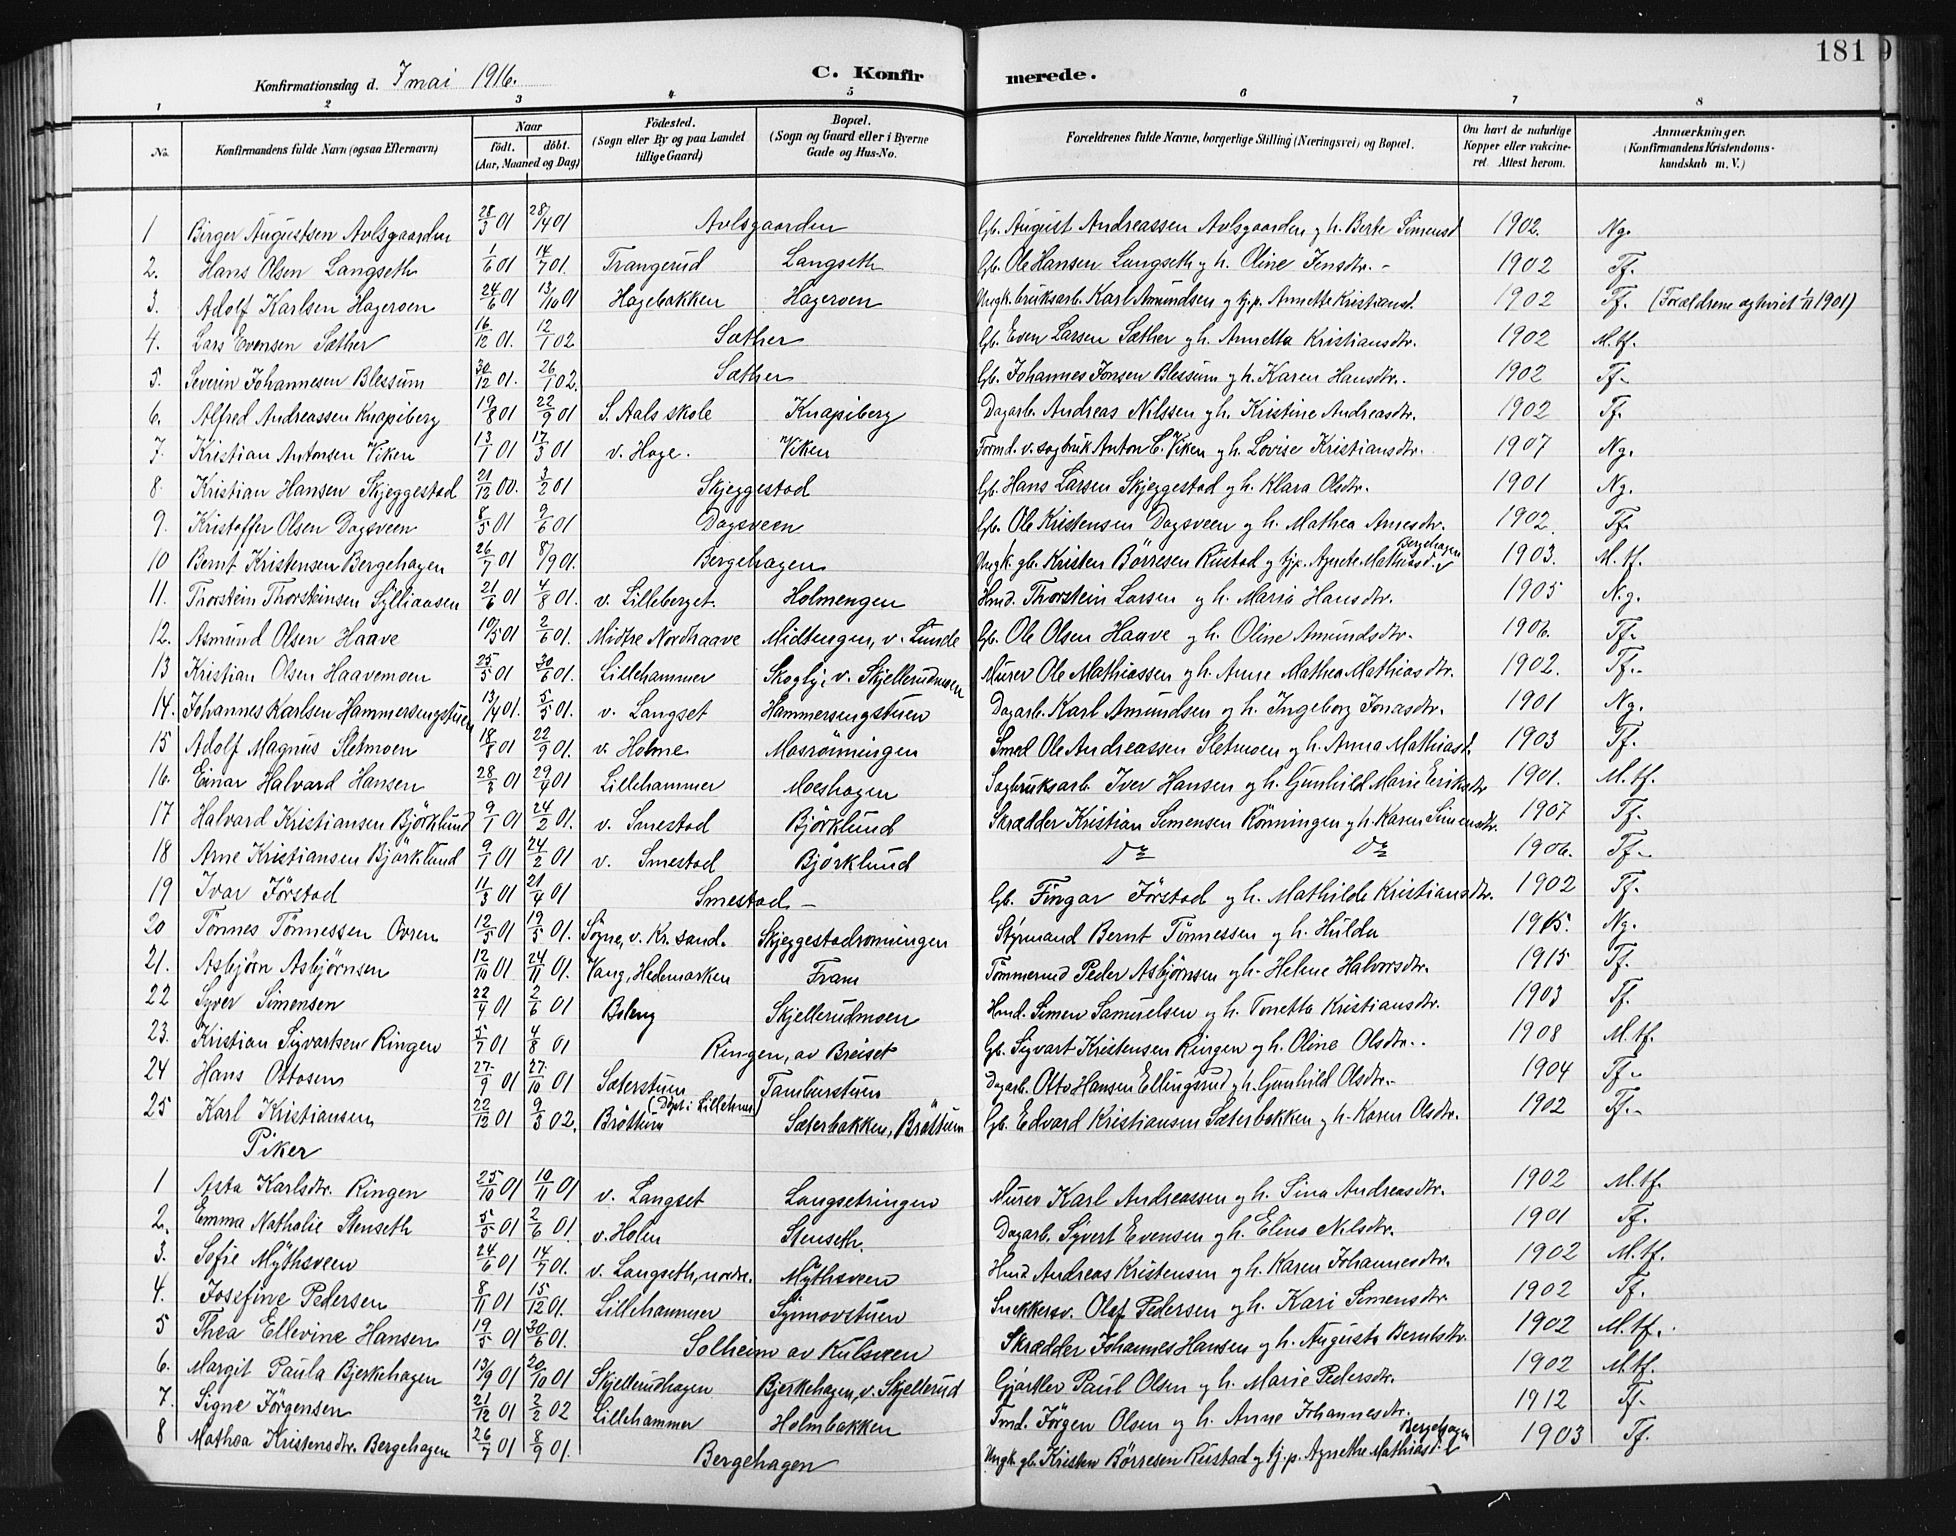 181 9
Konfirmationsdag d. 7 mai 1916. C. Konfirmerede.
1 2 3 4 5 6 7 8
No. Konfirmandens fulde Navn (ogsaa Efternavn) Naar födt. döbt. (Aar, Maaned og Dag) Födested. (Sogn eller By og paa Landet tillige Gaard) Bopæl. (Sogn og Gaard eller i Byerne Gade og Hus-No. Forældrenes fulde Navne, borgerlige Stilling (Næringsvei) og Bopæl. Om havt de naturlige Kopper eller vakcineret. Attest herom. Anmærkninger. (Konfirmandens Kristendomskundskab m. V.)
1 Birger Augustsen Avlsgaarden 28/3 01 28/4 01 Avlsgaarden Gb. August Andreassen Avlsgaarden og h. Berte Simensd 1902. Ng.
2. Hans Olsen Langseth 1/6 01 14/7 01. Trangerud Langseth Gb. Ole Hansen Langseth og h. Oline Jensdtr. - 1902 Tf.
3. Adolf Karlsen Hageroen 24/6 01 13/10 01 Hagebakken Hageroen Ungk. bruksarb. Karl Amundsen og tj.p. Annette Kristiansd. 1902 Tf. (Forældrene egteviet 1/11 1901)
4. Lars Evensen Sæther 16/12 01. 12/1 02 Sæther Gb. Even Larsen Sæther og h. Annetta Kristiansdtr. 1902 M.tf.
5. Severin Johannesen Blessum 30/12 01. 26/1 02. Sæther Gb. Johannes Jonsen Blessum og h. Karen Hansdtr. 1902 Tf.
6. Alfred Andreassen Knapiberg 19/8 01 22/9 01 S. Aals skole Knapiberg Dagarb. Andreas Nilssen og h. Kristine Andreasdtr. 1902 Tf.
7. Kristian Antonsen Viken 13/1 01 17/3 01 v. Hage. Viken Formd. v. sagbruk Anton C. Viken og h. Lovise Kristiansdtr. 1907 Ng.
8. Kristian Hansen Skjeggestad 21/12 00. 3/2 01 Skjeggestad Gb. Hans Larsen Skjeggestad og h. Klara Olsdtr. 1901 Ng.
9. Kristoffer Olsen Dagsveen 8/5 01 9/6 01 Dagsveen Gb. Ole Kristensen Dagsveen og h. Mathea Arnesdtr. 1902. Tf.
10 Bernt Kristensen Bergehagen 26/7 01 8/9 01. Bergehagen Ungk. gb. Kristen Börresen Rustad og tj.p. Agnete Mathiasd. Bergehagen 1903. M.tf.
11. Thorstein Thorsteinsen Sylliaasen 21/6 01 4/8 01. v. Lilleberget. Holmengen Hmd. Thorstein Larsen og h. Maria Hansdtr. 1905 N.g.
12. Asmund Olsen Haave 10/5 01 2/6 01. Midtre Nordhaave Midtengen, v. Lunde Gb. Ole Olsen Haave og h. Oline Amundsdtr. 1906. Tf.
13 Kristian Olsen Haavemoen 25/5 01 30/6 01. Lillehammer Skogly, v. Skjellerudmoen Murer Ole Mathiassen og h. Anne Mathea Mathiasdtr. 1902. Tf.
14. Johannes Karlsen Hammersengstuen 13/4 01. 5/5 01. v. Langset Hammersengstuen Dagarb. Karl Amundsen og h. Ingeborg Jonasdtr. 1901 Ng.
15 Adolf Magnus Sletmoen 18/8 01 22/9 01. v. Holme Mosrönningen Smed Ole Andreassen Sletmoen og h. Anna Mathiasd. 1903 Tf.
16. Einar Halvard Hansen 28/3 01 29/4 01 Lillehammer Moeshagen Sagbruksarb. Iver Hansen og h. Gunhild Marie Eriksdtr 1901. M.tf.
17 Halvard Kristiansen Björklund 9/1 01 24/2 01. v. Smestad Björklund Skrædder Kristian Simensen Rönningen og h. Karen Simensdtr. 1907 Tf.
18 Arne Kristiansen Björklund 9/1 01 24/2 01 v. Smestad Björklund do do 1906. Tf.
19 Ivar Förstad 11/3 01 21/4 01 Smestad - Gb. Fingar Förstad og h. Mathilde Kristiansdtr. 1902 Tf.
20 Tönnes Tönnessen Ovren 12/5 01 19/5 01. Sögne, v. Kr.sand. Skjeggestadrönningen Styrmand Bernt Tönnessen og h. Hulda 1915. Ng.
21. Asbjørn Asbjørnsen 12/10 01 24/11 01. Vang, Hedemarken Fram Tömmermd Peder Asbjørnsen og h. Helene Halvorsdtr. 1915 Tf.
22 Syver Simensen 22/4 01 2/6 01 Boleng Skjellerudmoen Hmd. Simen Samuelsen og h. Tonetta Kristiansdtr. 1903 Tf.
23. Kristian Sigvartsen Ringen 5/7 01 4/8 01 Ringen, av Breiset Gb. Sigvart Kristensen Ringen og h. Oline Olsdtr. 1908 M.tf.
24 Hans Ottosen 27/9 01 27/10 01 Sæterstuen Tamburstuen Dagarb. Otto Hansen Ellingsrud og h. Gunhild Olsdtr. 1904 Tf.
25 Karl Kristiansen 22/12 01 9/3 02. Bröttum (Döpt i Lilleham) Sæterbakken, Bröttum Gb. Edvard Kristiansen Sæterbakken og h. Karen Olsdtr. 1902 Tf.
Piker
1 Asta Karlsdtr. Ringen 25/10 01 10/11 01 v. Langset Langsetringen Murer Karl Andreassen og h. Sina Andreasdtr. 1902 M.tf.
2. Emma Nathalie Stenseth 5/5 01 2/6 01. v. Holen Stenseth. Dagarb. Syvert Evensen og h. Eline Nilsdtr. 1901 Tf.
3. Sofie Mythsveen 24/6 01 14/7 01. v. Langseth, nordre. Mythsveen Hmd Andreas Kristensen og h. Karen Johannesdtr. 1902 M.tf.
4. Josefine Pedersen 8/11 01 15/12 01. Lillehammer Synnovstuen Snekkersv. Olaf Pedersen og h. Kari Simensdtr. 1902 Tf.
5 Thea Ellevine Hansen 19/5 01 30/6 01. Solheim av Kulsveen Skrædder Johannes Hansen og h. Augusta Berntsdtr. 1902 M.tf.
6. Margit Paula Bjerkehagen 13/9 01 20/10 01 Skjellerudhagen Bjerkehagen, v. Skjellerud Gjörtler Paul Olsen og h. Marie Pedersdtr. 1902 M.tf.
7. Signe Jörgensen 21/12 01 2/2 02 Lillehammer Holmbakken Tmd. Jörgen Olsen og h. Anne Johannesdtr. 1912 Tf.
8 Mathea Kristensdtr. Bergehagen 26/7 01 8/9 01. Bergehagen Ungk. gb. Kristen Börresen Rustad og tj.p. Agnethe Mathiasd. Bergehagen 1903 Tf.